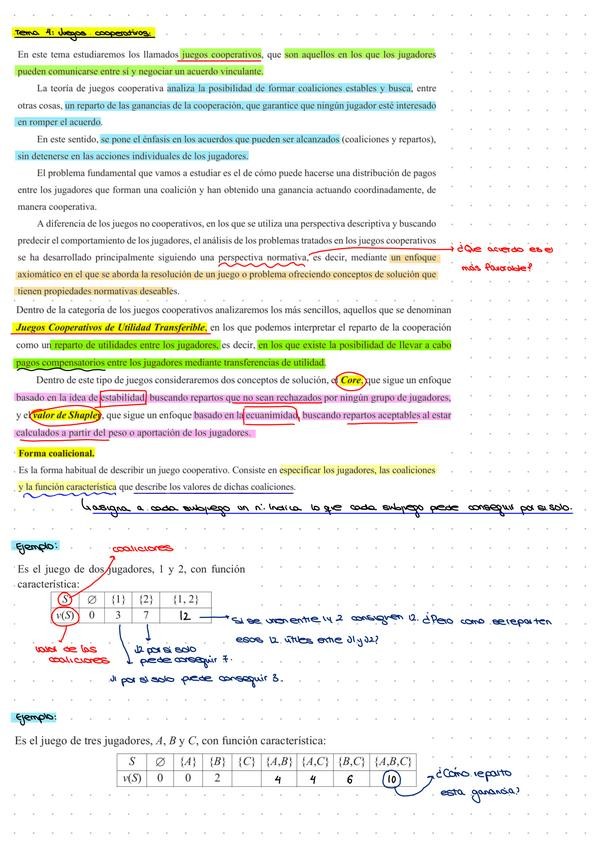 Tema 4: Juegos cooperativos.
En este tema estudiaremos los llamados juegos cooperativos, que son aquellos en los que los jugadores
pueden comunicarse entre sí y negociar un acuerdo vinculante.
La teoría de juegos cooperativa analiza la posibilidad de formar coaliciones estables y busca, entre
otras cosas, un reparto de las ganancias de la cooperación, que garantice que ningún jugador esté interesado
en romper el acuerdo.
En este sentido, se pone el énfasis en los acuerdos que pueden ser alcanzados (coaliciones y repartos),
sin detenerse en las acciones individuales de los jugadores.
El problema fundamental que vamos a estudiar es el de cómo puede hacerse una distribución de pagos
entre los jugadores que forman una coalición y han obtenido una ganancia actuando coordinadamente, de
manera cooperativa.
A diferencia de los juegos no cooperativos, en los que se utiliza una perspectiva descriptiva y buscando
predecir el comportamiento de los jugadores, el análisis de los problemas tratados en los juegos cooperativos
se ha desarrollado principalmente siguiendo una perspectiva normativa, es decir, mediante un enfoque
axiomático en el que se aborda la resolución de un juego o problema ofreciendo conceptos de solución que
tienen propiedades normativas deseables.
¿Que acuerdo es el
más favorable?
Dentro de la categoría de los juegos cooperativos analizaremos los más sencillos, aquellos que se denominan
Juegos Cooperativos de Utilidad Transferible, en los que podemos interpretar el reparto de la cooperación
como un reparto de utilidades entre los jugadores, es decir, en los que existe la posibilidad de llevar a cabo
pagos compensatorios entre los jugadores mediante transferencias de utilidad.
Dentro de este tipo de juegos consideraremos dos conceptos de solución, el Core, que sigue un enfoque
basado en la idea de estabilidad, buscando repartos que no sean rechazados por ningún grupo de jugadores,
y el valor de Shapley, que sigue un enfoque basado en la ecuanimidad, buscando repartos aceptables al estar
calculados a partir del peso o aportación de los jugadores.
Forma coalicional.
Es la forma habitual de describir un juego cooperativo. Consiste en especificar los jugadores, las coaliciones
y la función característica que describe los valores de dichas coaliciones.
asigna a cada subjuego un nº: indica lo que cada subjuego puede conseguir por sí solo.
Ejemplo:
coaliciones
Es el juego de dos jugadores, 1 y 2, con función
característica:
S ∅ {1} {2} {1, 2}
v(S) 0 3 7 12
Si se unen entre 1 y 2 consiguen 12. ¿Pero como se reparten
esos 12 útiles entre J1 y J2?
valor de las
coaliciones
J2 por si solo
puede conseguir 7.
J1 por si solo puede conseguir 3.
Ejemplo:
Es el juego de tres jugadores, A, B y C, con función característica:
S ∅ {A} {B} {C} {A,B} {A,C} {B,C} {A,B,C}
v(S) 0 0 2 4 4 6 10
¿Cómo reparto
esta ganancia?